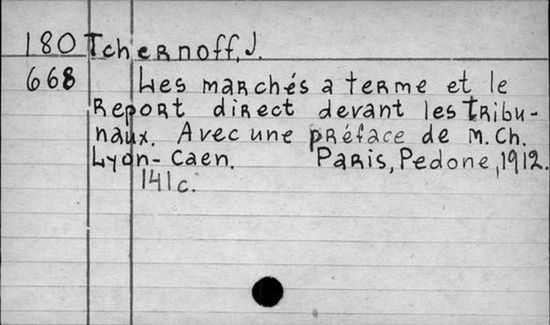 180 Tchernoff, J.
668 Les marchés a terme et le
Report direct devant les tribu-
naux. Avec une préface de M. Ch.
Lyon-Caen. Paris, Pedone, 1912.
141 c.